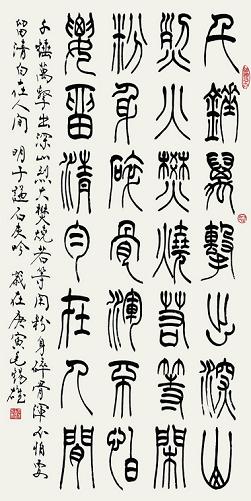 千錘萬擊出深山
烈火焚燒若等閑
粉身碎骨渾不怕
要留清白在人間
千錘萬擊出深山烈火焚燒若等閑粉身碎骨渾不怕要
留清白在人間 明于謙石灰吟 歲在庚寅毛